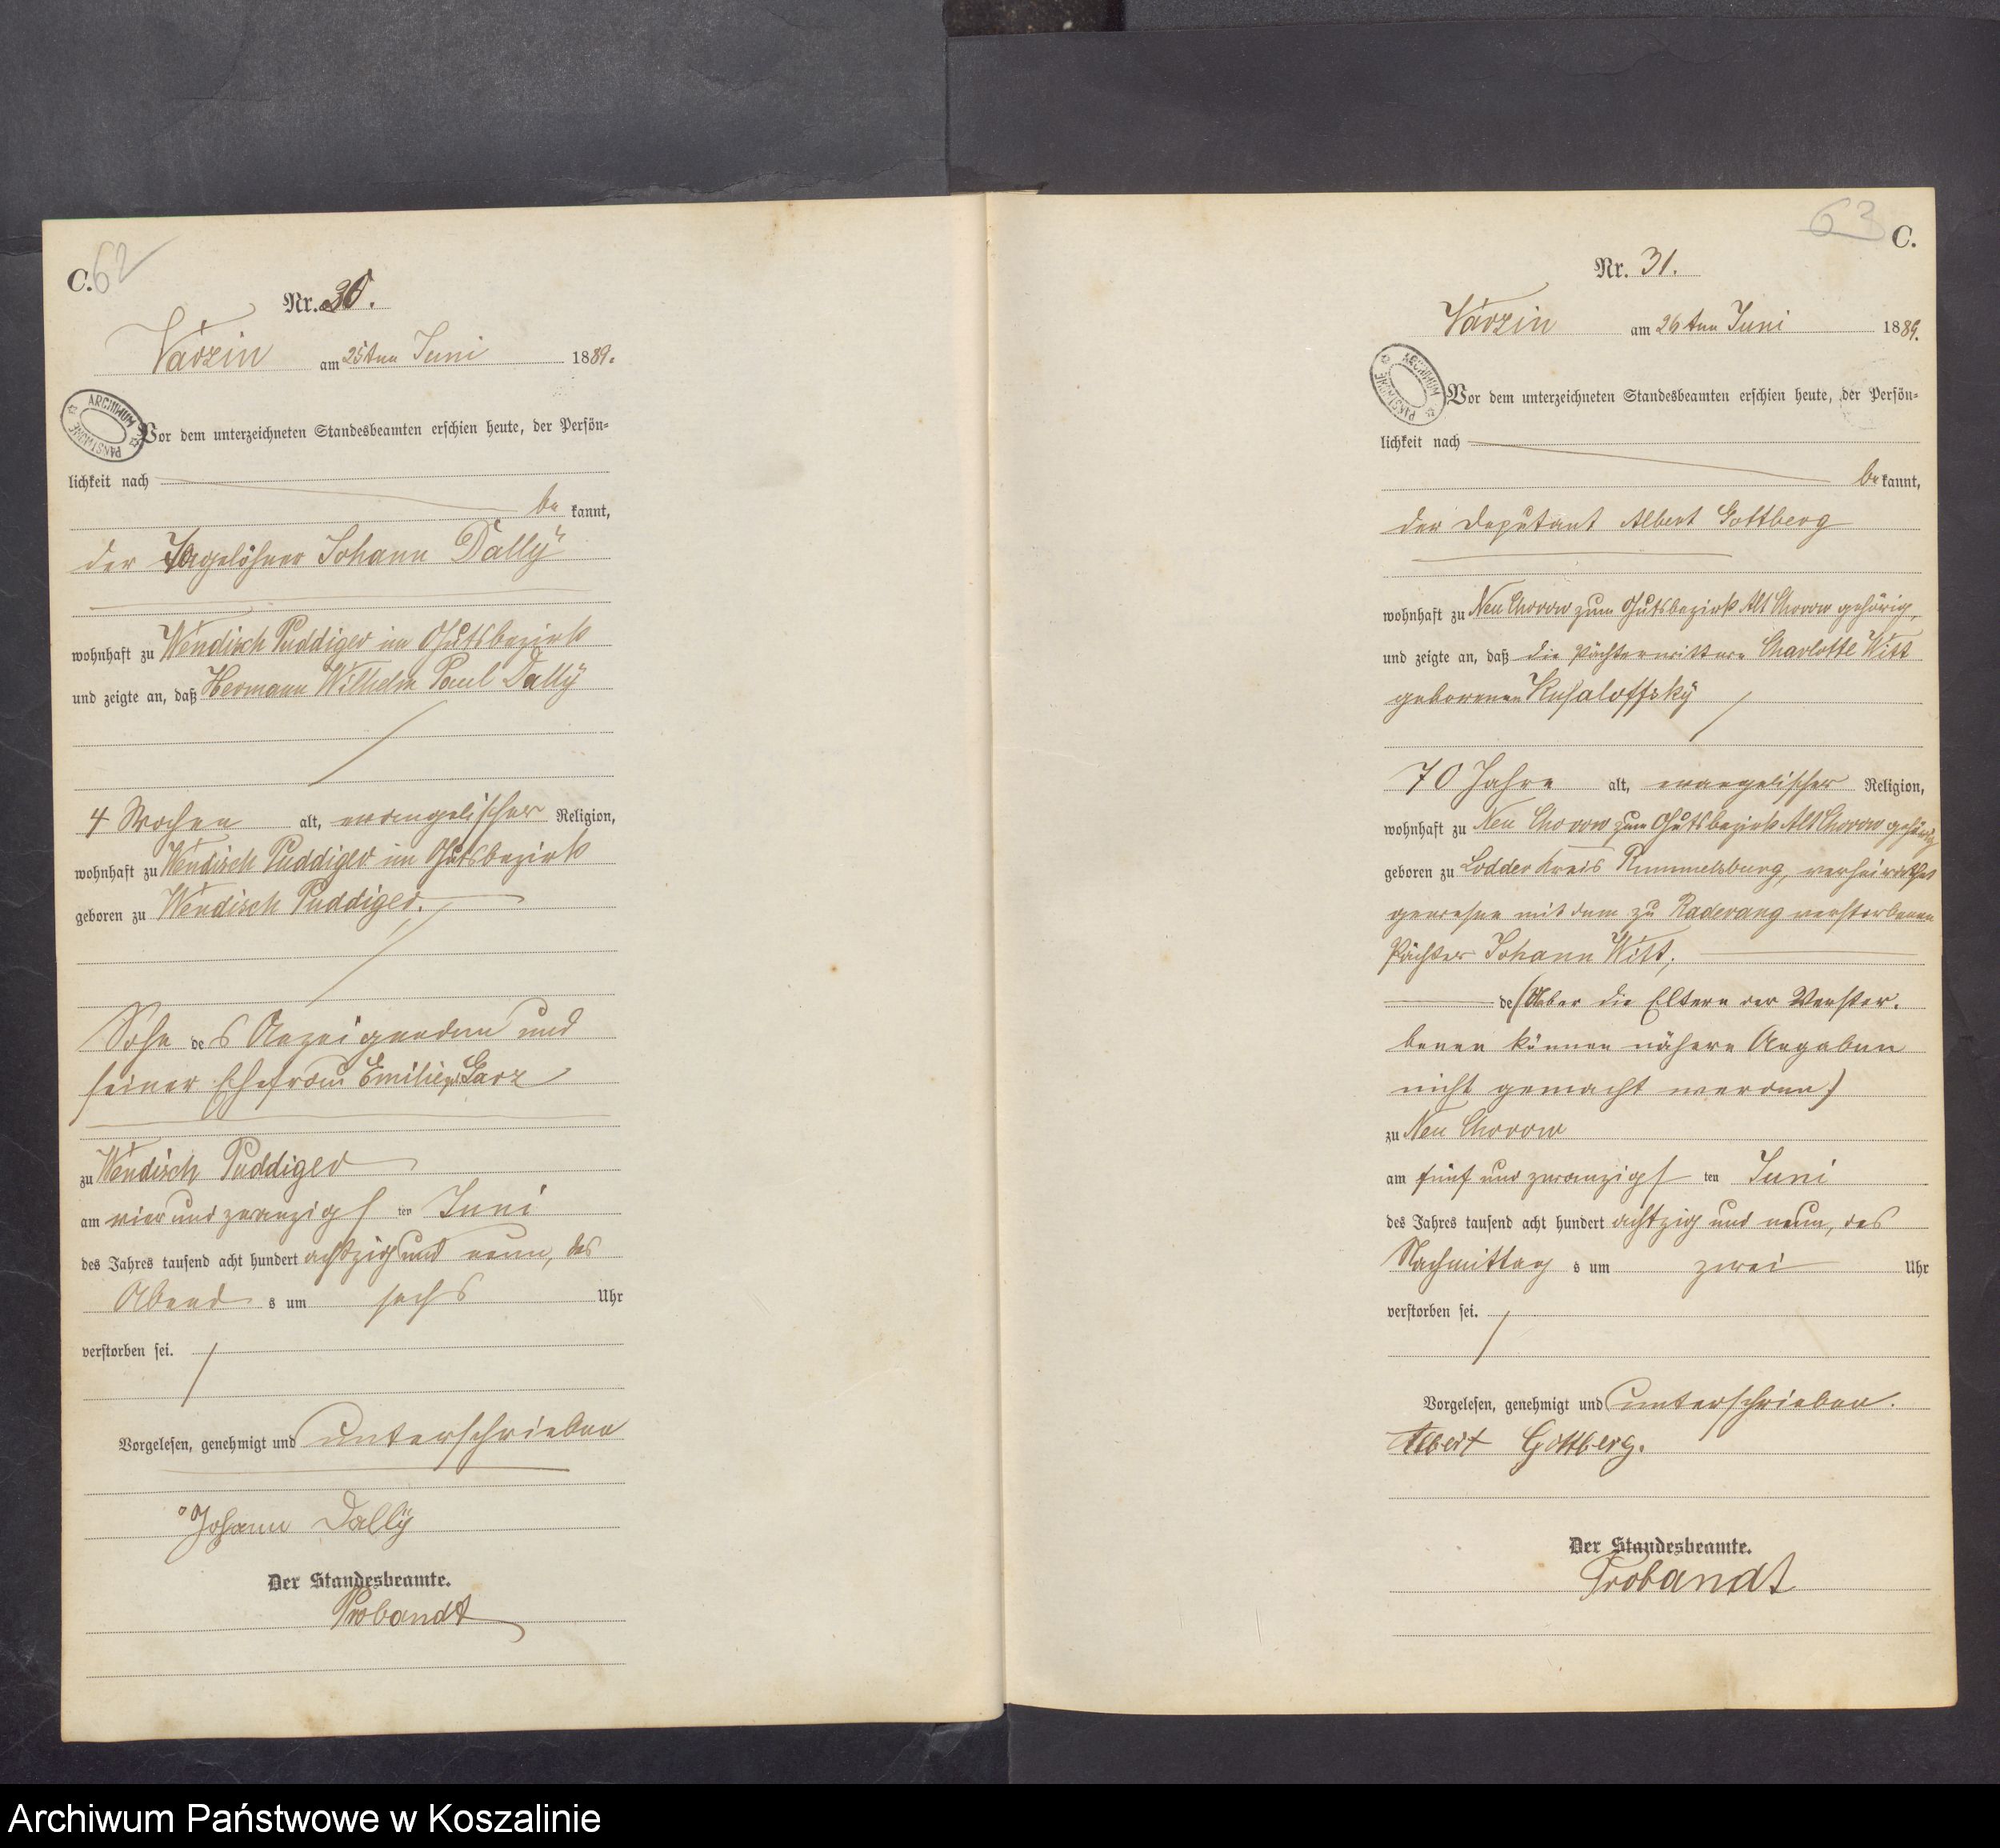 C. 62
Nr. 30.
Varzin am 25ten Juni 1889.
ARCHIWUM PAŃSTWOWE
Vor dem unterzeichneten Standesbeamten erschien heute, der Persön-
lichkeit nach
be kannt,
der Tagelöhner Johann Dally
wohnhaft zu Wendisch Puddiger im Gutsbezirk
und zeigte an, daß Hermann Wilhelm Paul Dally
4 Wochen alt, evangelischer Religion,
wohnhaft zu Wendisch Puddiger im Gutsbezirk
geboren zu Wendisch Puddiger.
Sohn des Anzeigenden und
seiner Ehefrau Emilie Garz
zu Wendisch Puddiger
am vier und zwanzigsten Juni
des Jahres tausend acht hundert achtzig und neun, des
Abend s um sechs Uhr
verstorben sei.
Vorgelesen, genehmigt und unterschrieben
Johann Dally
Der Standesbeamte.
Probandt
63 C.
Nr. 31.
Varzin am 26ten Juni 1889.
ARCHIWUM PAŃSTWOWE
Vor dem unterzeichneten Standesbeamten erschien heute, der Persön-
lichkeit nach
be kannt,
der Deputant Albert Gottberg
wohnhaft zu Neu Chorow zum Gutsbezirk Alt Chorow gehörig,
und zeigte an, daß die Pächterwittwe Charlotte Witt
geborenen
70 Jahre alt, evangelischer Religion,
wohnhaft zu Neu Chorow zum Gutsbezirk Alt Chorow gehörig
geboren zu Lodder Kreis Rummelsburg, verheirathet
gewesen mit dem zu Raderang verstorbenen
Pächter Johann Witt,
de (Ueber die Eltern der Verstor-
benen können nähere Angaben
nicht gemacht werden)
zu Neu Chorow
am fünf und zwanzigsten Juni
des Jahres tausend acht hundert achtzig und neun, des
Nachmittag s um zwei Uhr
verstorben sei.
Vorgelesen, genehmigt und unterschrieben.
Albert Gottberg.
Der Standesbeamte.
Probandt
Archiwum Państwowe w Koszalinie